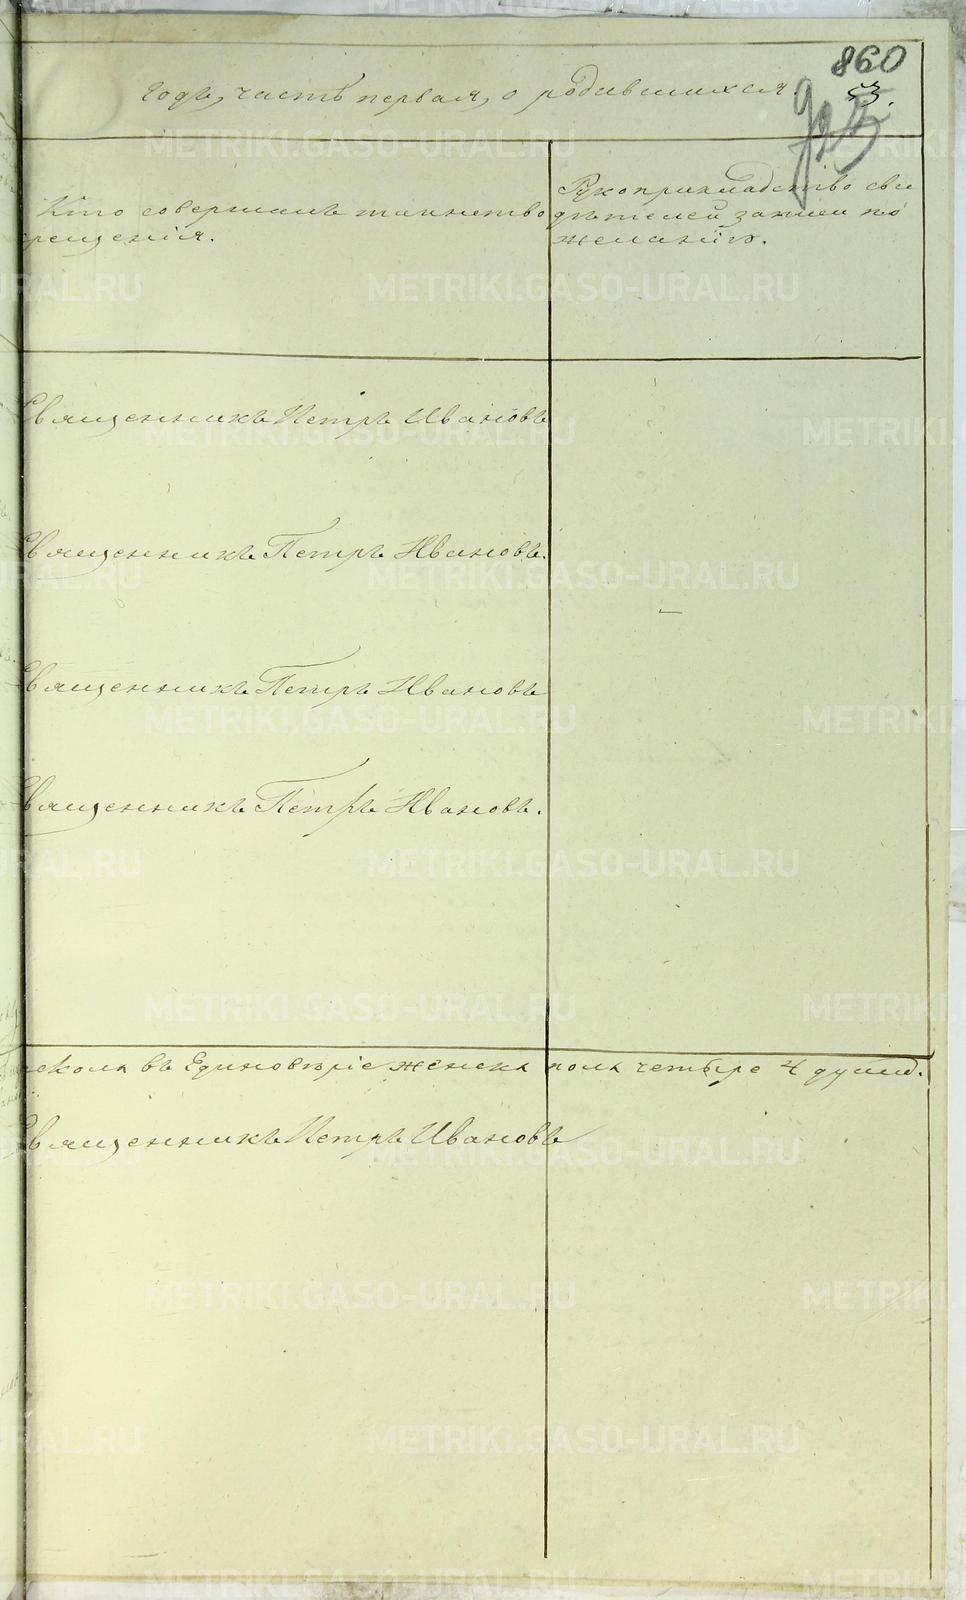 860
годъ, часть первая, о родившихся.
3.
Кто совершалъ таинство
крещенія.
Рукоприкладство сви
дѣтелей записи по
желанію.
Священникъ Петръ Ивановъ
Священникъ Петръ Ивановъ.
Священникъ Петръ Ивановъ
Священникъ Петръ Ивановъ.
скола въ Единовѣріе женска пола четыре 4 душъ.
Священникъ Петръ Ивановъ
METRIKI.GASO-URAL.RU